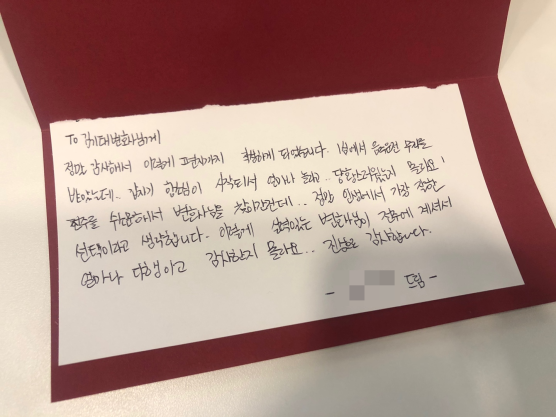 To 김태변호사님께
정말 감사해서 이렇게 손편지까지 작성하게 되었습니다. 1심에서 음주운전 무죄를
받았는데.. 갑자기 항소심이 시작되서 얼마나 놀라.. 당황스러웠는지 몰라요!
현수를 수소문해서 변호사님을 찾아갔는데.. 정말 인생에서 가장 잘한
선택이라고 생각합니다. 이렇게 실력있는 변호사님이 전주에 계셔서
얼마나 다행이고 감사한지 몰라요.. 진심으로 감사합니다.
- 드림 -